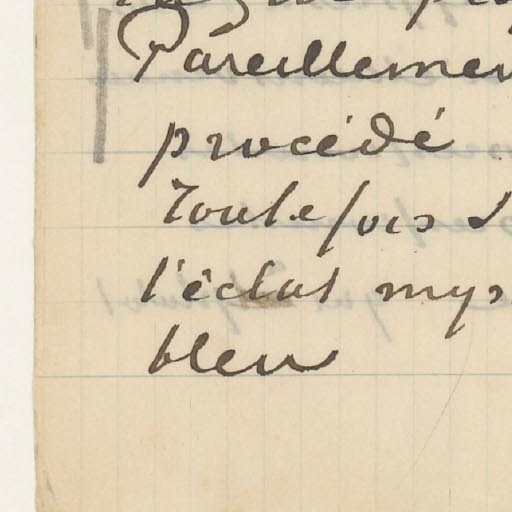 Pareillemen
procédé
Toutefois
l'éclat mys
bleu